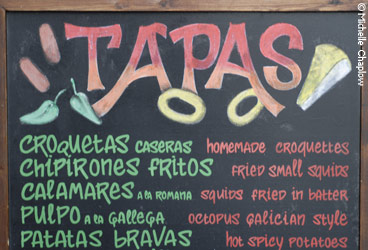 TAPAS
CROQUETAS CASERAS HOMEMADE CROQUETTES
CHIPIRONES FRITOS FRIED SMALL SQUIDS
CALAMARES A LA ROMANA SQUIDS FRIED IN BATTER
PULPO A LA GALLEGA OCTOPUS GALICIAN STYLE
PATATAS BRAVAS HOT SPICY POTATOES
© Michelle Chaplow